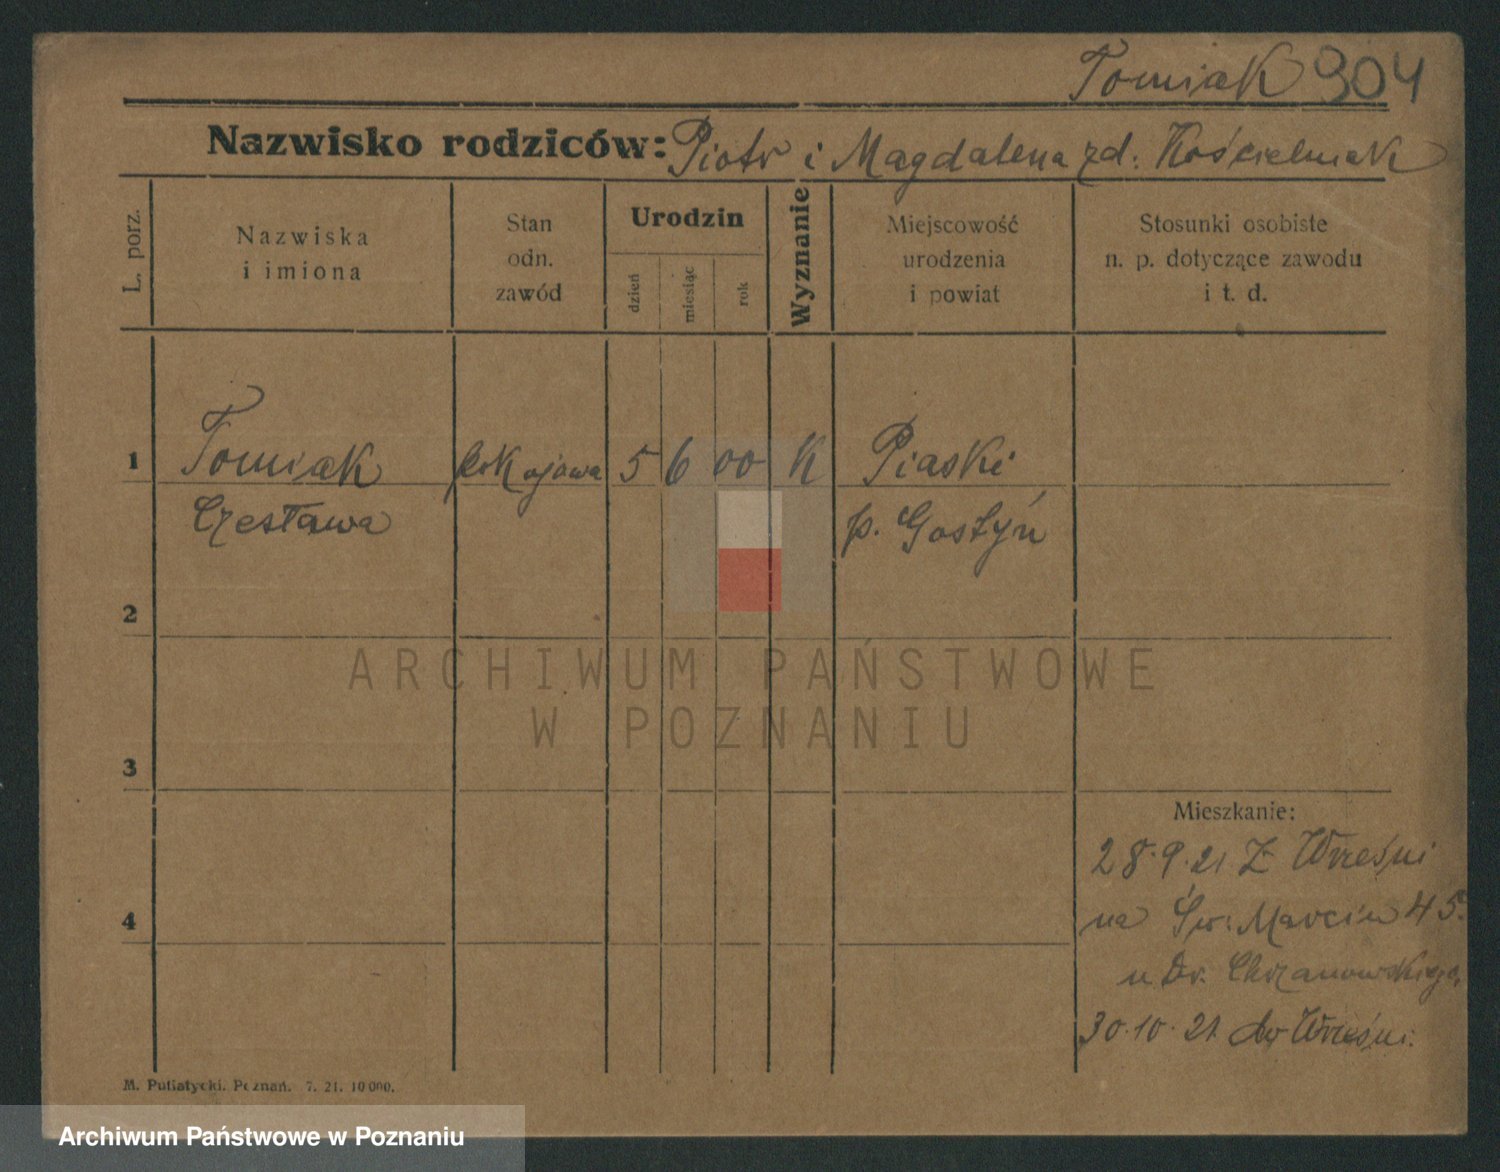 Tomiak 904
Nazwisko rodziców: Piotr i Magdalena zd. Kościelniak
L. porz.
Nazwiska
i imiona
Stan
odn.
zawód
Urodzin
dzień
miesiąc
rok
Wyznanie
Miejscowość
urodzenia
i powiat
Stosunki osobiste
n. p. dotyczące zawodu
i t. d.
1 Tomiak pokojowa 5 6 00 K Piaski
Czesława p. Gostyń
2
3
4
Mieszkanie:
28.9.21. Z Wrześni
na Św. Marcin 45.
u Dr. Chrzanowskiego,
30.10.21 do Wrześni.
M. Putiatycki. Poznań. 7. 21. 10000.
ARCHIWUM PAŃSTWOWE
W POZNANIU
Archiwum Państwowe w Poznaniu